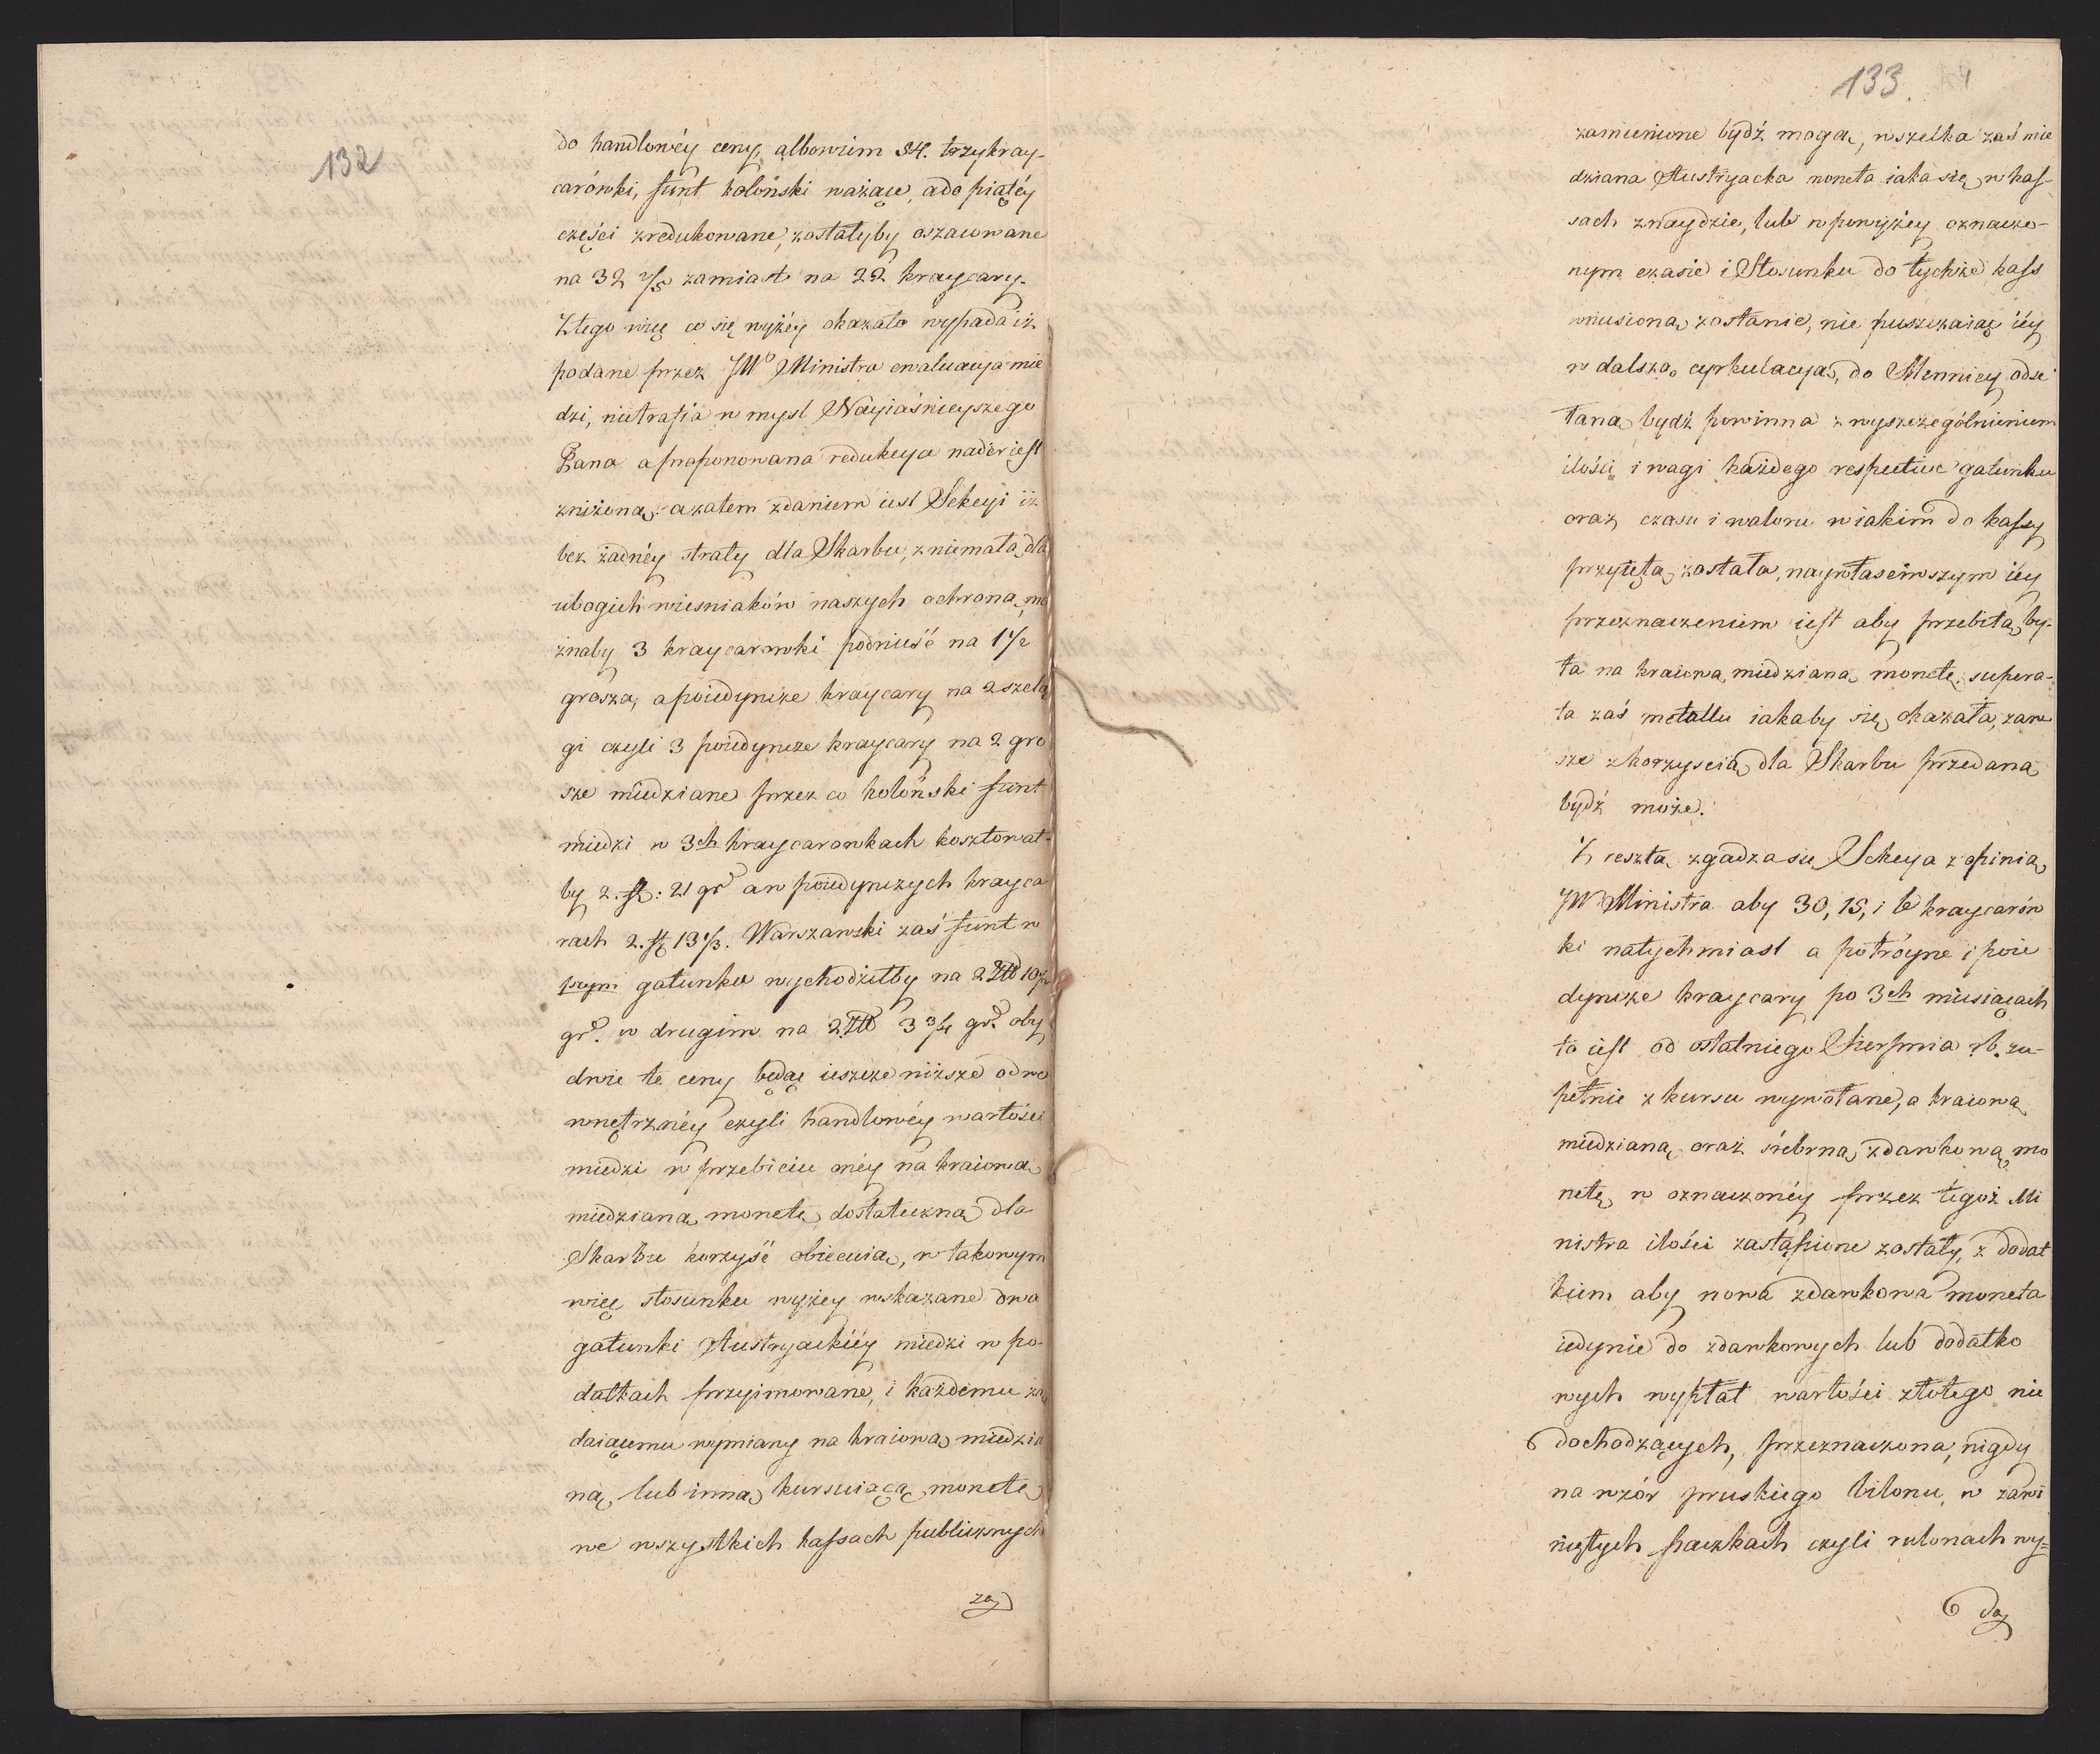 132
do handlowéy ceny, albowiem 54. trzykray-
carówki, funt koloński ważące, a do piątéy
części zredukowane, zostałyby oszacowane
na 32 2/5 zamiast na 22 kraycary.
Z tego więc co się wyżéy okazało wypada iż
podane przez JWo Ministra ewaluacyja mie
dzi, nietrafia w mysl Nayiaśnieyszego
Pana a proponowana redukcya nader iest
zniżoną, a zatem zdaniem iest Sekcyi iż
bez żadnéy straty dla Skarbu, z niemałą dla
ubogich wiesniaków naszych ochroną mo
żnaby 3 kraycarowki podnieść na 1 1/2
grosza, a poiedyncze kraycary na 2 szelą
gi czyli 3 poiedyncze kraycary na 2 gro
sze miedziane przez co koloński funt
miedzi w 3ch kraycarowkach kosztował-
by 2. fl: 21 gr a w poiedynczych krayca
rach 2. fl 13 1/3. Warszawski zaś funt w
pszym gatunku wychodziłby na 2 10
gr. w drugim na 2 3 3/4 gr. oby
dwie te ceny będąc ieszcze niższe od we
wnętrznéy czyli handlowéy wartości
miedzi w przebiciu onéy na kraiową
miedzianą monetę dostateczną dla
Skarbu korzyść obiecuią, w takowym
więc stosunku wyżey wskazane dwa
gatunki Austryackiéy miedzi w po-
datkach przyimowane, i każdemu żą
daiącemu wymiany na kraiową miedzia
ną, lub inną kursuiącą monetę
we wszystkich kassach publicznych
za
133.
zamienione bydź mogą, wszelka zaś mie
dziana Austryacka moneta iaka się w kas-
sach znaydzie, lub w powyżéy oznaczo-
nym czasie i Stosunku do tychże kass
wniesiona zostanie, nie puszczaiąc iéy
w dalszą cyrkulacyą, do Mennicy odse
łaną bydź powinna z wyszczególnieniem
ilości i wagi każdego respective gatunku
oraz czasu i waloru w iakim do kassy
przyiętą została, naywłaściwszym iéy
przeznaczeniem iest aby przebitą by-
ła na kraiową miedzianą monetę, supera-
ta zaś metallu iakaby się okazała, zaw
sze z korzyscią dla Skarbu przedaną
bydź może.
Z resztą zgadza się Sekcya z opinią
JW Ministra aby 30, 15, i 6 kraycarów
ki natychmiast a potróyne i poie
dyncze kraycary po 3ch miesiącach
to iest od ostatniego Sierpnia rb. zu-
pełnie z kursu wywołane, a kraiową
miedzianą oraz śrebrną zdawkową mo
netą w oznaczonéy przez tegoż Mi
nistra ilości zastąpione zostały, z dodat
kiem aby nowa zdawkowa moneta
iedynie do zdawkowych lub dodatko
wych wypłat wartości złotego nie
dochodzących, przeznaczona, nigdy
na wzór pruskiego bilonu, w zawi
niętych paczkach czyli rulonach wy=
da